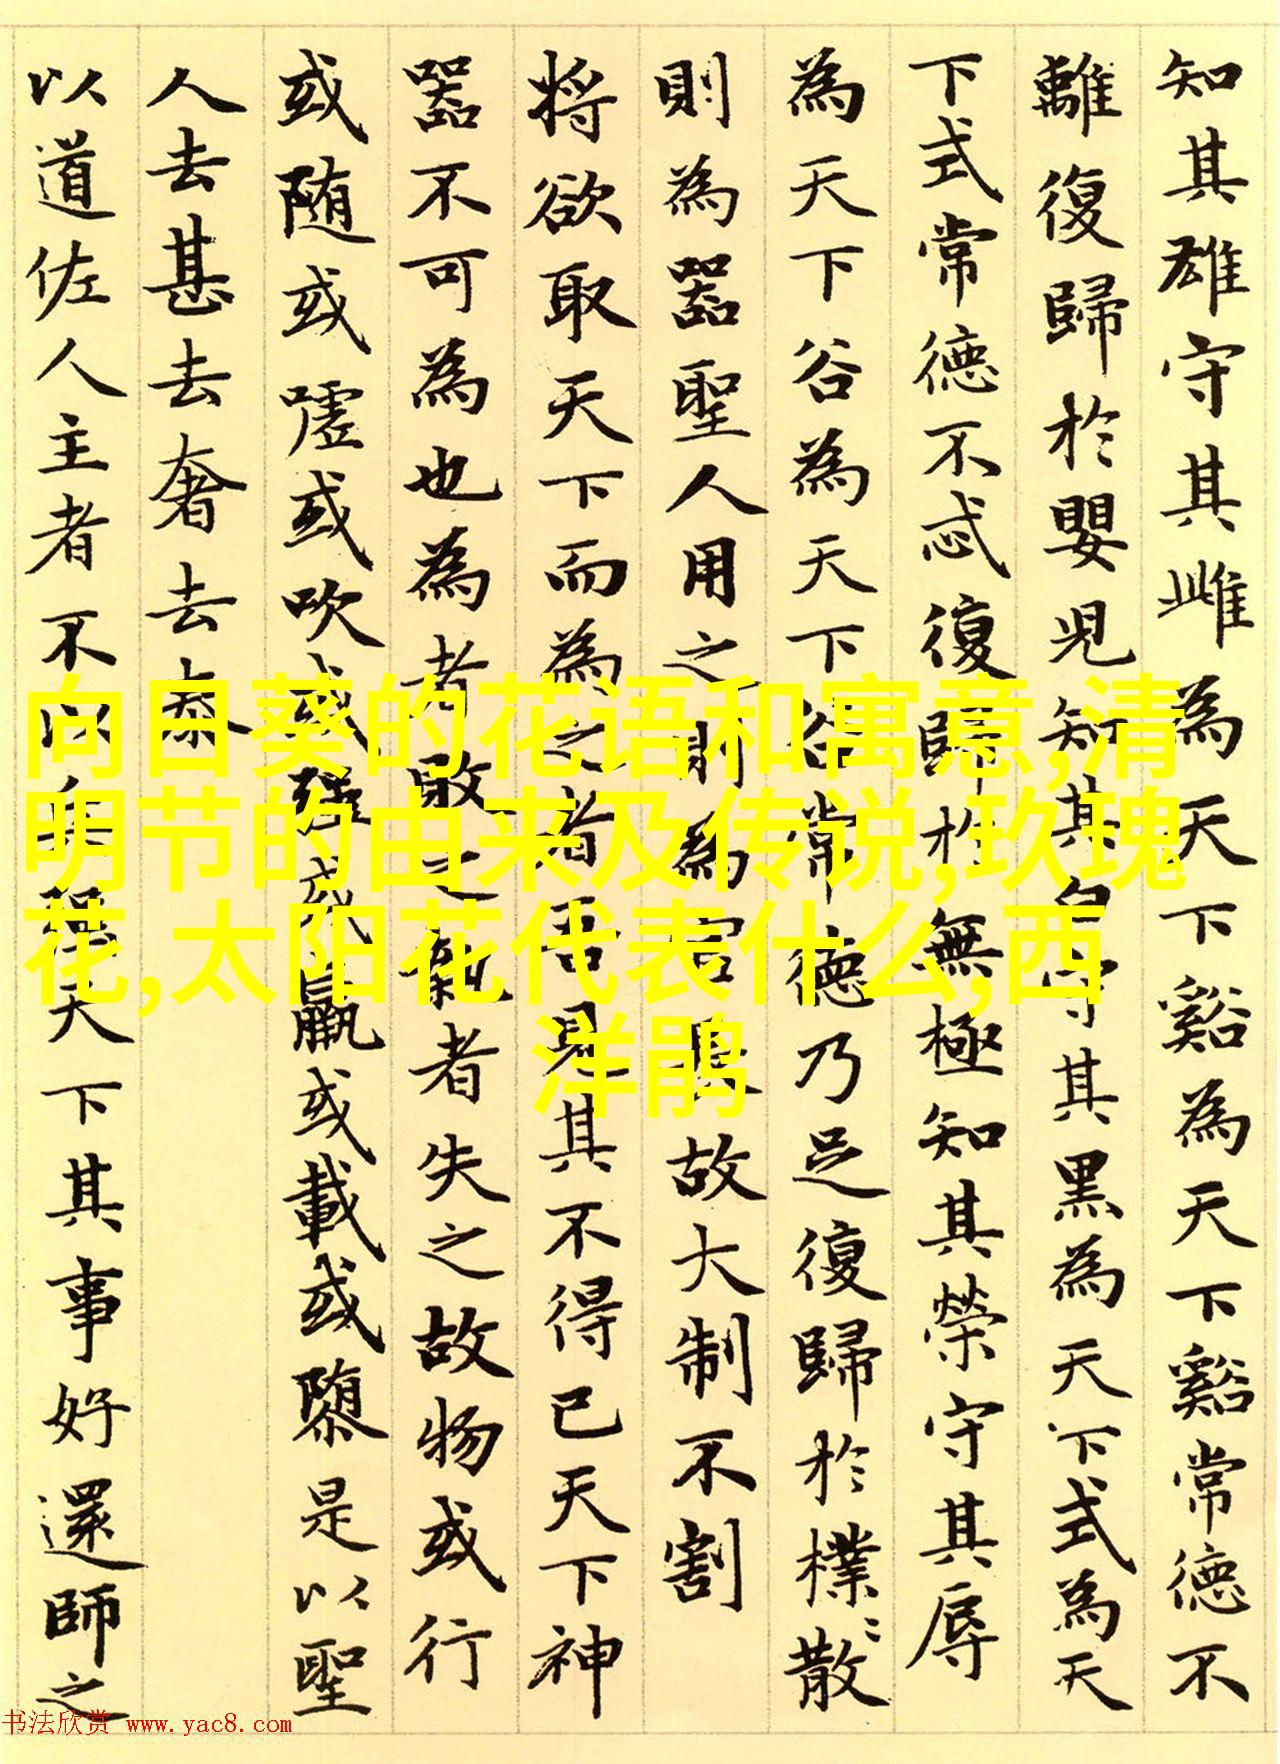 知其雄守其雌為天下谿為天下谿常德不
離復歸於嬰兒知其白守其黑為天下式為天
下式常德不忒復歸於無極知其榮守其辱
為天下谷為天下谷常德乃足復歸於樸〻散
則為器聖人用之則為官長故大制不割
將欲取天下而為之者吾見其不得已天下神
器不可為也為者敗之執者失之故物或行
或隨或噓或吹或強或羸或載或隳是以聖
人去甚去奢去泰
以道佐人主者不以兵強天下其事好還師之
向日葵的花语和寓意,清
明节的由来及传说,玫瑰
花,太阳花代表什么,西
洋鹃
书法欣赏 www.yac8.com